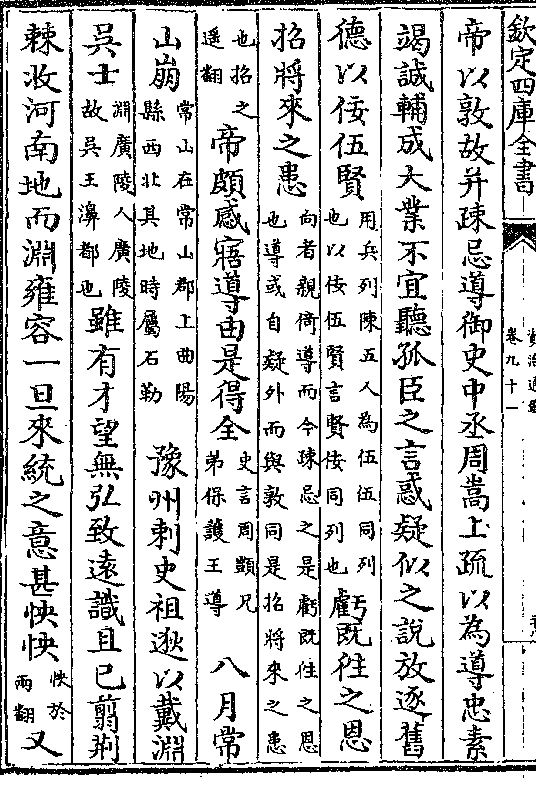 欽定四庫全書
資治通鑑
卷九十一
帝以敦故并疎忌導御史中丞周嵩上疏以為導忠素
竭誠輔成大業不宜聽孤臣之言惑疑似之說放逐舊
德以佞伍賢用兵列陳五人為伍伍同列也以佞伍賢言賢佞同列也虧既徃之恩
招將來之患向者親倚導而今疎忌之是虧既徃之恩也導或自疑外而與敦同是招將來之患
也招之遥翻帝頗感寤導由是得全史言周顗兄弟保護王導八月常
山崩常山在常山郡上曲陽縣西北其地時屬石勒豫州刺史祖逖以戴淵
吳士淵廣陵人廣陵故吳王濞都也雖有才望無弘致遠識且已翦荆
棘收河南地而淵雍容一旦來統之意甚怏怏怏於兩翻又